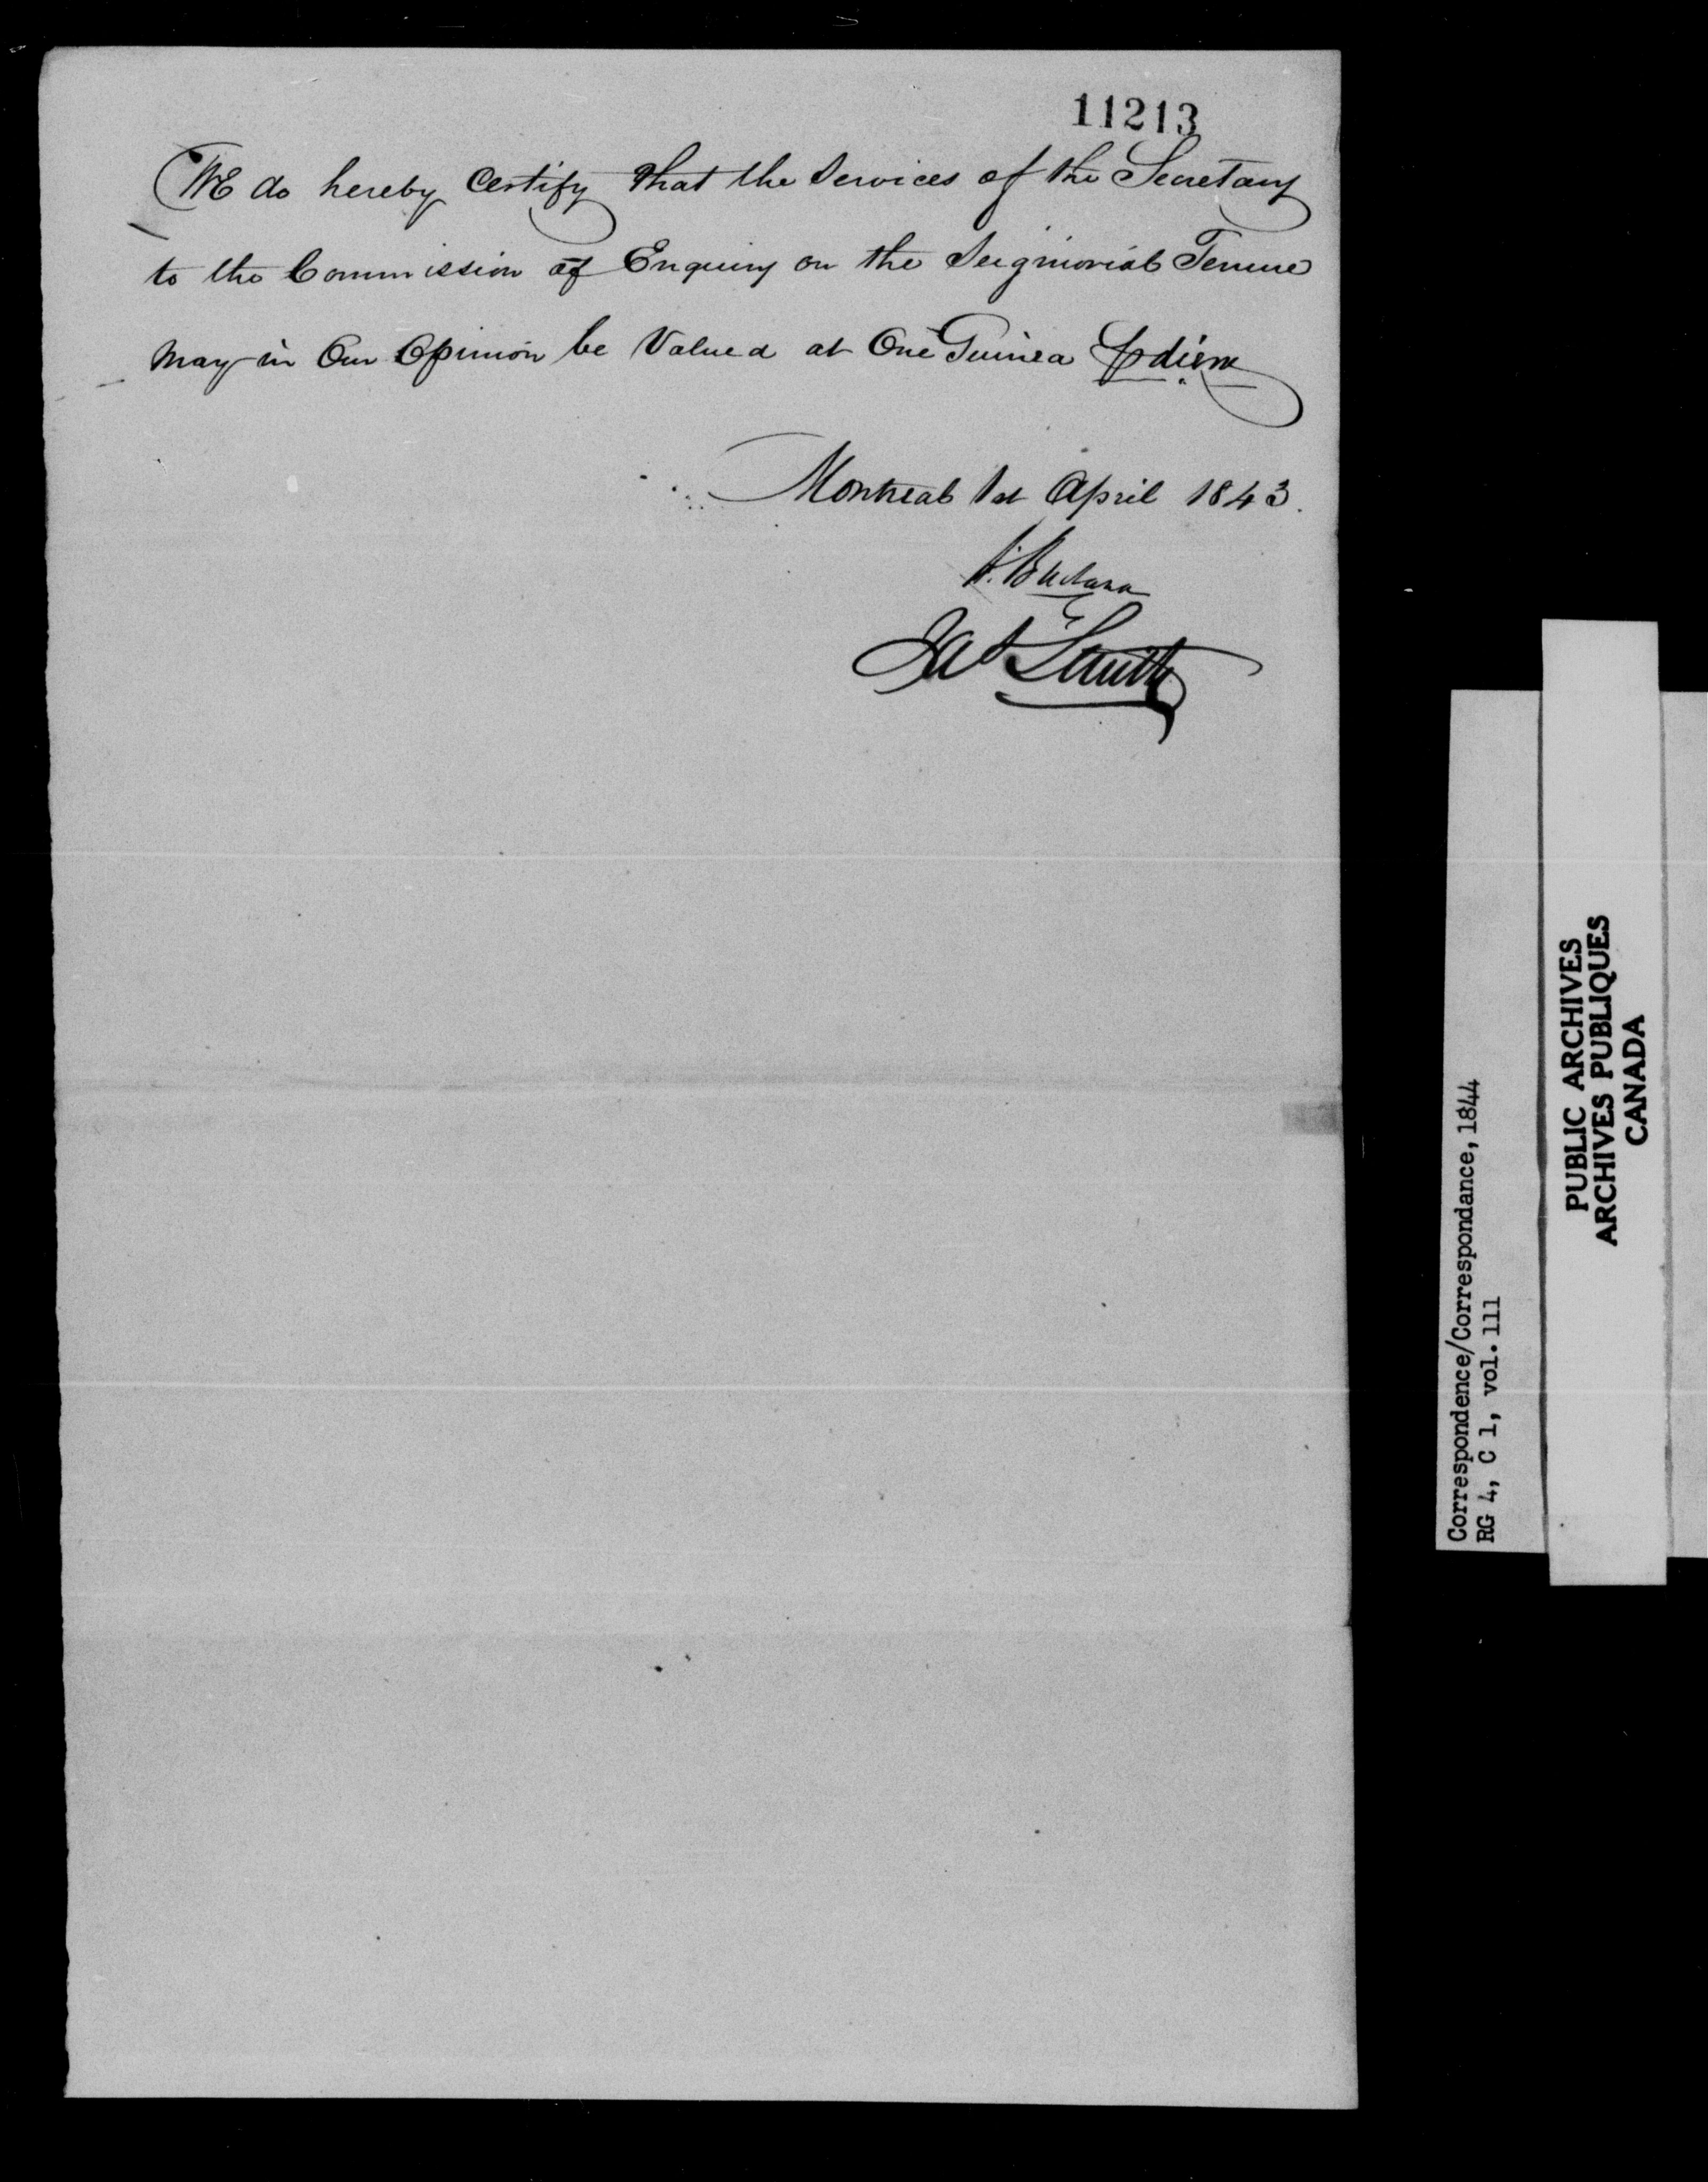 11213
WE do hereby Certify that the Services of the Secretary
to the Commission of Enquiry on the Seigniorial Tenure
may in Our Opinion be Valued at One Guinea ⅌ diem
Montreal 1st April 1843.
A. Buchanan
Jas Smith
Correspondence/Correspondance, 1844
RG 4, C 1, vol. 111
PUBLIC ARCHIVES
ARCHIVES PUBLIQUES
CANADA